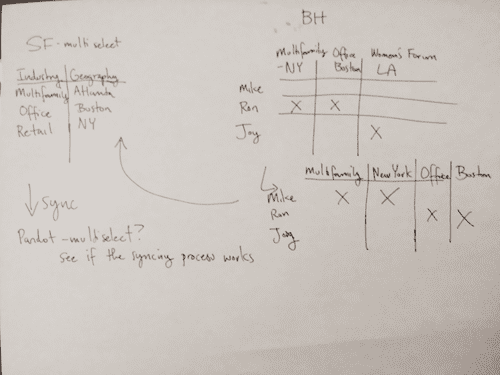 SF - multi select
Industry Geography
Multifamily Atlanta
Office Boston
Retail NY
↓ Sync
Pardot - multiselect?
see if the syncing process works
BH
Multifamily Office Women's Forum
- NY Boston LA
Mike
Ron X X
Joy X
Multifamily New York Office Boston
Mike X X
Ron X X
Joy